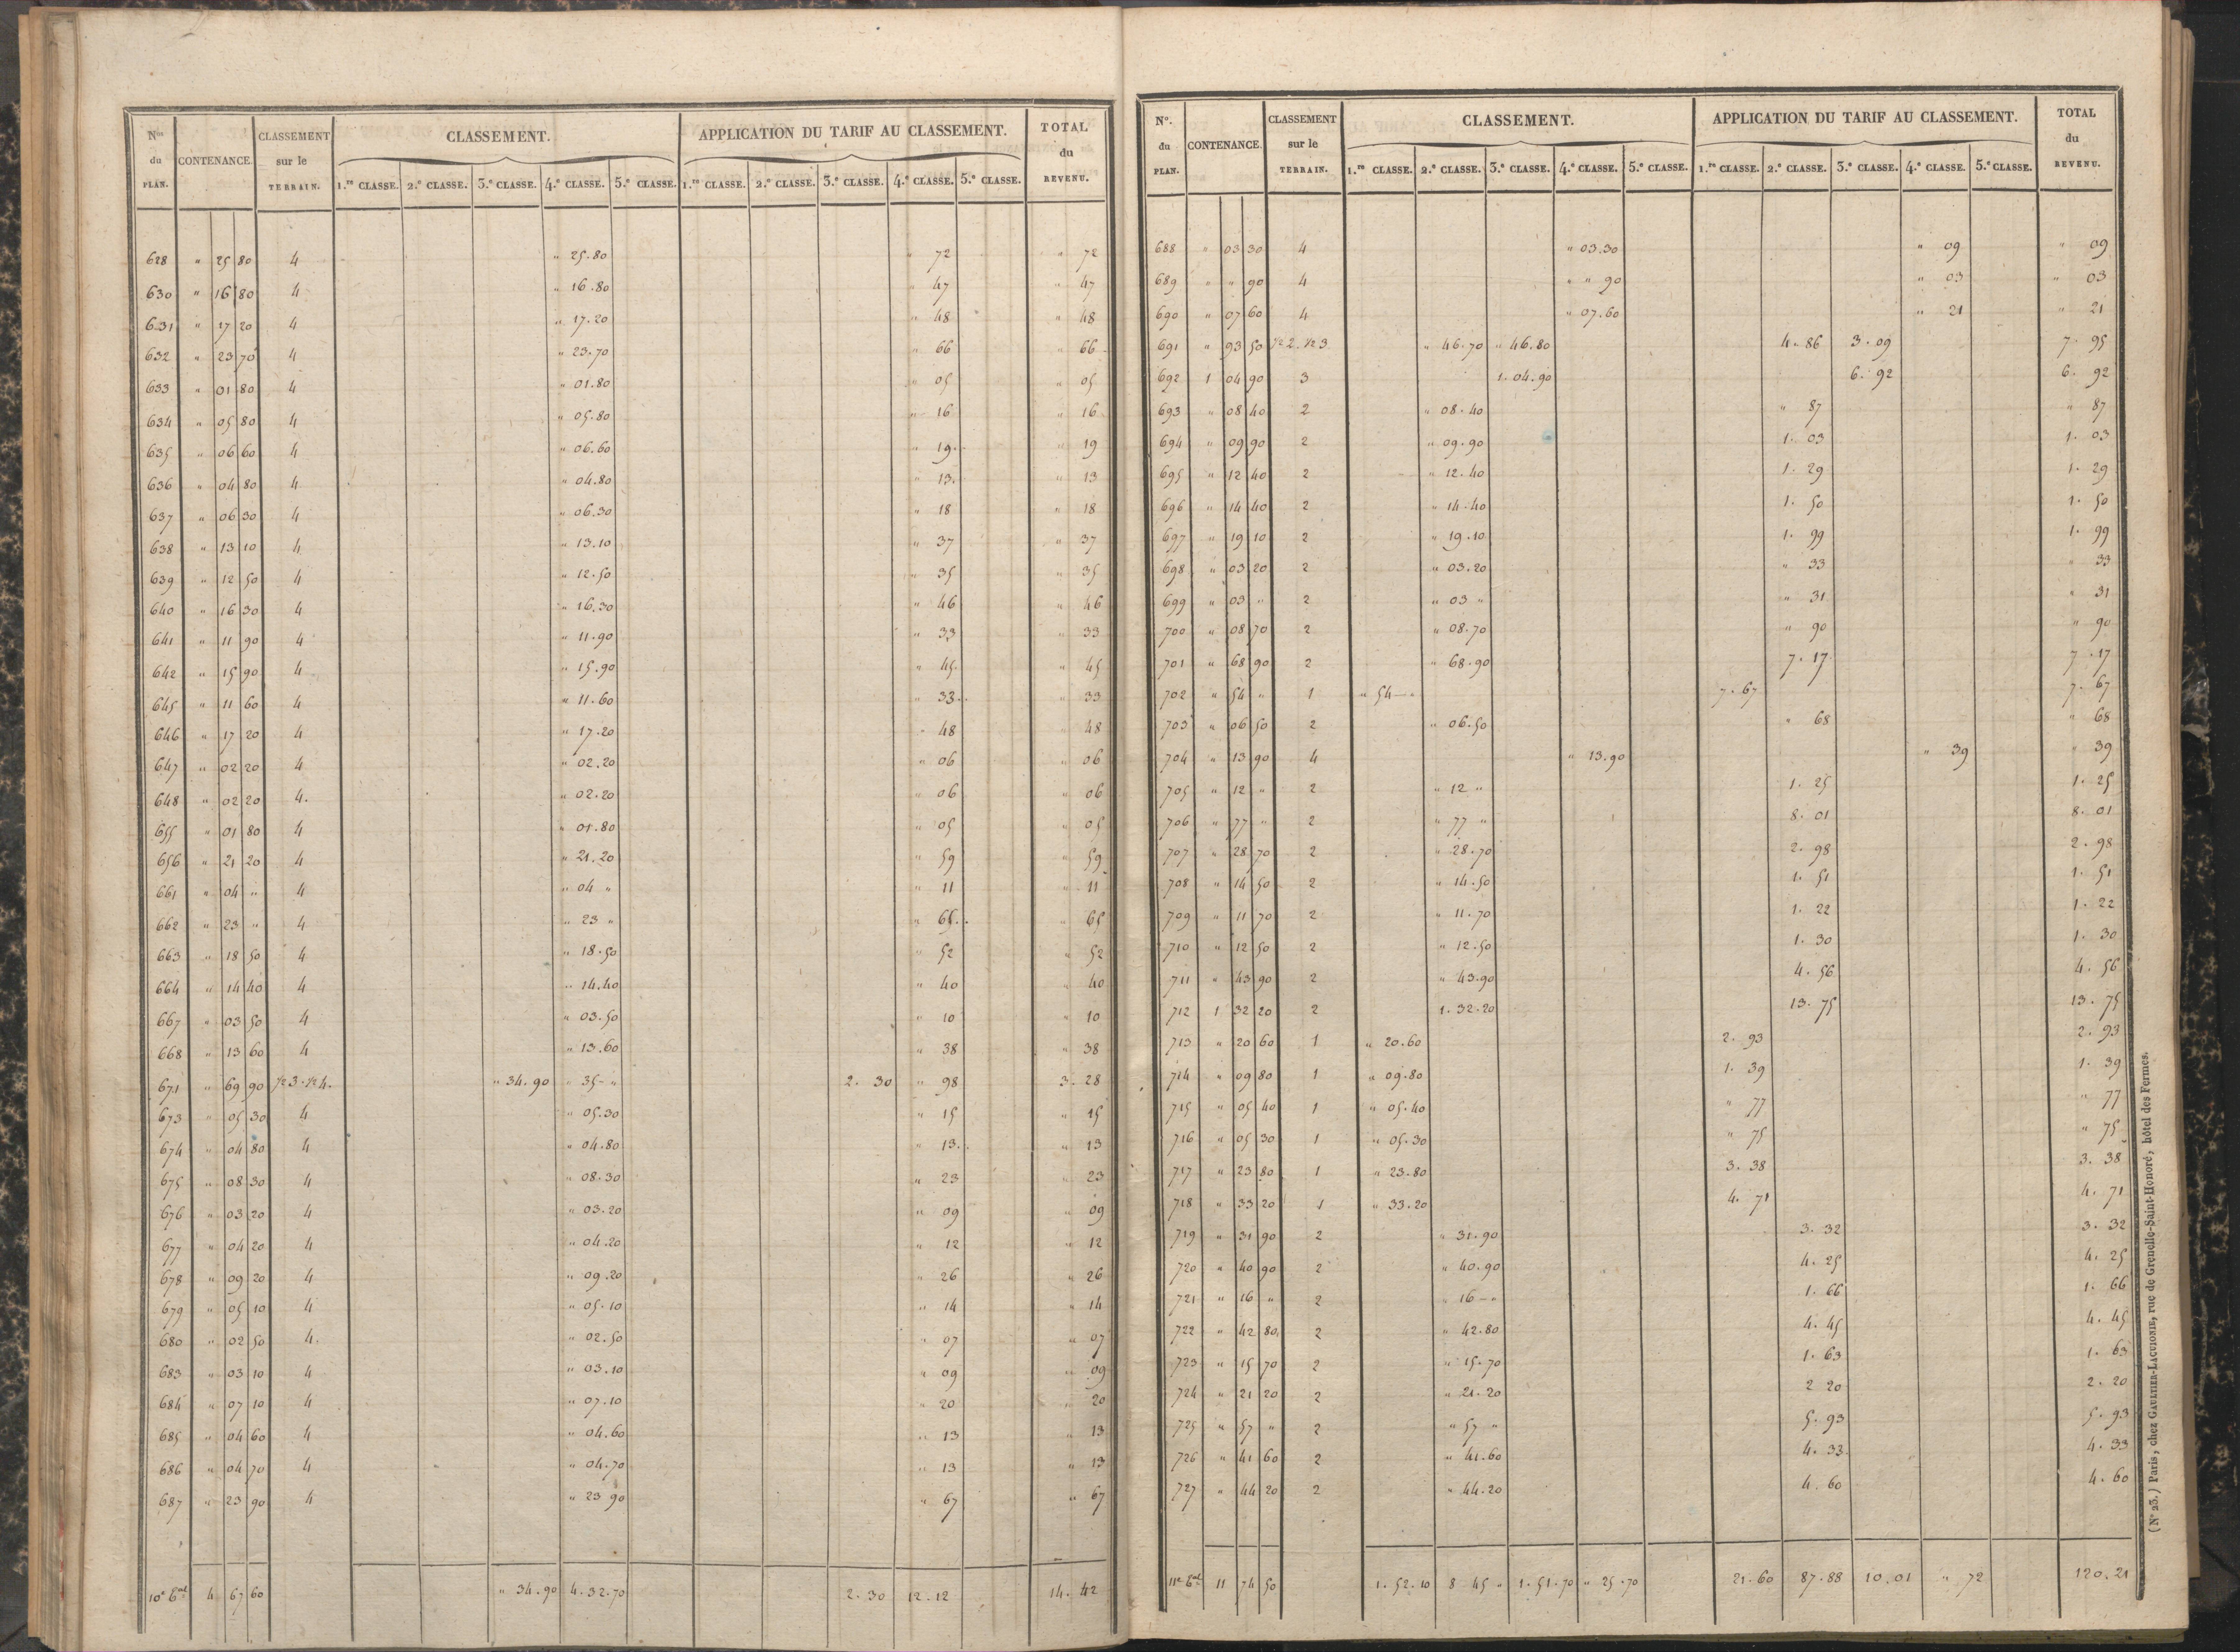 Nos du PLAN. CONTENANCE. CLASSEMENT sur le TERRAIN. CLASSEMENT. APPLICATION DU TARIF AU CLASSEMENT. TOTAL du REVENU.
1.re CLASSE. 2.e CLASSE. 3.e CLASSE. 4.e CLASSE. 5.e CLASSE. 1.re CLASSE. 2.e CLASSE. 3.e CLASSE. 4.e CLASSE. 5.e CLASSE.
628 " 25 80 4 " 25.80 " 72 " 72
630 " 16 80 4 " 16.80 " 47 " 47
631 " 17 20 4 " 17.20 " 48 " 48
632 " 23 70 4 " 23.70 " 66 " 66
633 " 01 80 4 " 01.80 " 05 " 05
634 " 05 80 4 " 05.80 " 16 " 16
635 " 06 60 4 " 06.60 " 19 " 19
636 " 04 80 4 " 04.80 " 13 " 13
637 " 06 30 4 " 06.30 " 18 " 18
638 " 13 10 4 " 13.10 " 37 " 37
639 " 12 50 4 " 12.50 " 35 " 35
640 " 16 30 4 " 16.30 " 46 " 46
641 " 11 90 4 " 11.90 " 33 " 33
642 " 15 90 4 " 15.90 " 45 " 45
645 " 11 60 4 " 11.60 " 33 " 33
646 " 17 20 4 " 17.20 " 48 " 48
647 " 02 20 4 " 02.20 " 06 " 06
648 " 02 20 4. " 02.20 " 06 " 06
655 " 01 80 4 " 01.80 " 05 " 05
656 " 21 20 4 " 21.20 " 59 " 59
661 " 04 " 4 " 04 " " 11 " 11
662 " 23 " 4 " 23 " " 65 " 65
663 " 18 50 4 " 18.50 " 52 " 52
664 " 14 40 4 " 14.40 " 40 " 40
667 " 03 50 4 " 03.50 " 10 " 10
668 " 13 60 4 " 13.60 " 38 " 38
671 " 69 90 1/2 3. 1/2 4. " 34.90 " 35 - " 2. 30 " 98 3. 28
673 " 05 30 4 " 05.30 " 15 " 15
674 " 04 80 4 " 04.80 " 13 " 13
675 " 08 30 4 " 08.30 " 23 " 23
676 " 03 20 4 " 03.20 " 09 " 09
677 " 04 20 4 " 04.20 " 12 " 12
678 " 09 20 4 " 09.20 " 26 " 26
679 " 05 10 4 " 05.10 " 14 " 14
680 " 02 50 4. " 02.50 " 07 " 07
683 " 03 10 4 " 03.10 " 09 " 09
684 " 07 10 4 " 07.10 " 20 " 20
685 " 04 60 4 " 04.60 " 13 " 13
686 " 04 70 4 " 04.70 " 13 " 13
687 " 23 90 4 " 23 90 " 67 " 67
4 67 60 " 34.90 4.32.70 2.30 12.12 14.42
No. du PLAN. CONTENANCE. CLASSEMENT sur le TERRAIN. CLASSEMENT. APPLICATION DU TARIF AU CLASSEMENT. TOTAL du REVENU.
1.re CLASSE. 2.e CLASSE. 3.e CLASSE. 4.e CLASSE. 5.e CLASSE. 1.re CLASSE. 2.e CLASSE. 3.e CLASSE. 4.e CLASSE. 5.e CLASSE.
688 " 03 30 4 " 03.30 " 09 " 09
689 " " 90 4 " " 90 " 03 " 03
690 " 07 60 4 " 07.60 " 21 " 21
691 " 93 50 1/2 2. 1/2 3 " 46.70 " 46.80 4. 86 3. 09 7. 95
692 1 04 90 3 1.04.90 6. 92 6. 92
693 " 08 40 2 " 08.40 " 87 " 87
694 " 09 90 2 " 09.90 1. 03 1. 03
695 " 12 40 2 " 12.40 1. 29 1. 29
696 " 14 40 2 " 14.40 1. 50 1. 50
697 " 19 10 2 " 19.10 1. 99 1. 99
698 " 03 20 2 " 03.20 " 33 " 33
699 " 03 " 2 " 03 " " 31 " 31
700 " 08 70 2 " 08.70 " 90 " 90
701 " 68 90 2 " 68.90 7. 17 7. 17
702 " 54 " 1 " 54 - " 7. 67 7. 67
703 " 06 50 2 " 06.50 " 68 " 68
704 " 13 90 4 " 13.90 " 39 " 39
705 " 12 " 2 " 12 " 1. 25 1. 25
706 " 77 " 2 " 77 " 8. 01 8. 01
707 " 28 70 2 " 28.70 2. 98 2. 98
708 " 14 50 2 " 14.50 1. 51 1. 51
709 " 11 70 2 " 11.70 1. 22 1. 22
710 " 12 50 2 " 12.50 1. 30 1. 30
711 " 43 90 2 " 43.90 4. 56 4. 56
712 1 32 20 2 1.32.20 13. 75 13. 75
713 " 20 60 1 " 20.60 2. 93 2. 93
714 " 09 80 1 " 09.80 1. 39 1. 39
715 " 05 40 1 " 05.40 " 77 " 77
716 " 05 30 1 " 05.30 " 75 " 75
717 " 23 80 1 " 23.80 3. 38 3. 38
718 " 33 20 1 " 33.20 4. 71 4. 71
719 " 31 90 2 " 31.90 3. 32 3. 32
720 " 40 90 2 " 40.90 4. 25 4. 25
721 " 16 " 2 " 16 - " 1. 66 1. 66
722 " 42 80 2 " 42.80 4. 45 4. 45
723 " 15 70 2 " 15.70 1. 63 1. 63
724 " 21 20 2 " 21.20 2 20 2. 20
725 " 57 " 2 " 57 " 5. 93 5. 93
726 " 41 60 2 " 41.60 4. 33 4. 33
727 " 44 20 2 " 44.20 4. 60 4. 60
11 74 50 1.52.10 8 45 " 1.51.70 " 25.70 21.60 87.88 10.01 " 72 120.21
(N° 23.) Paris, chez GAULTIER-LAGUIONIE, rue de Grenelle-Saint-Honoré, hôtel des Fermes.